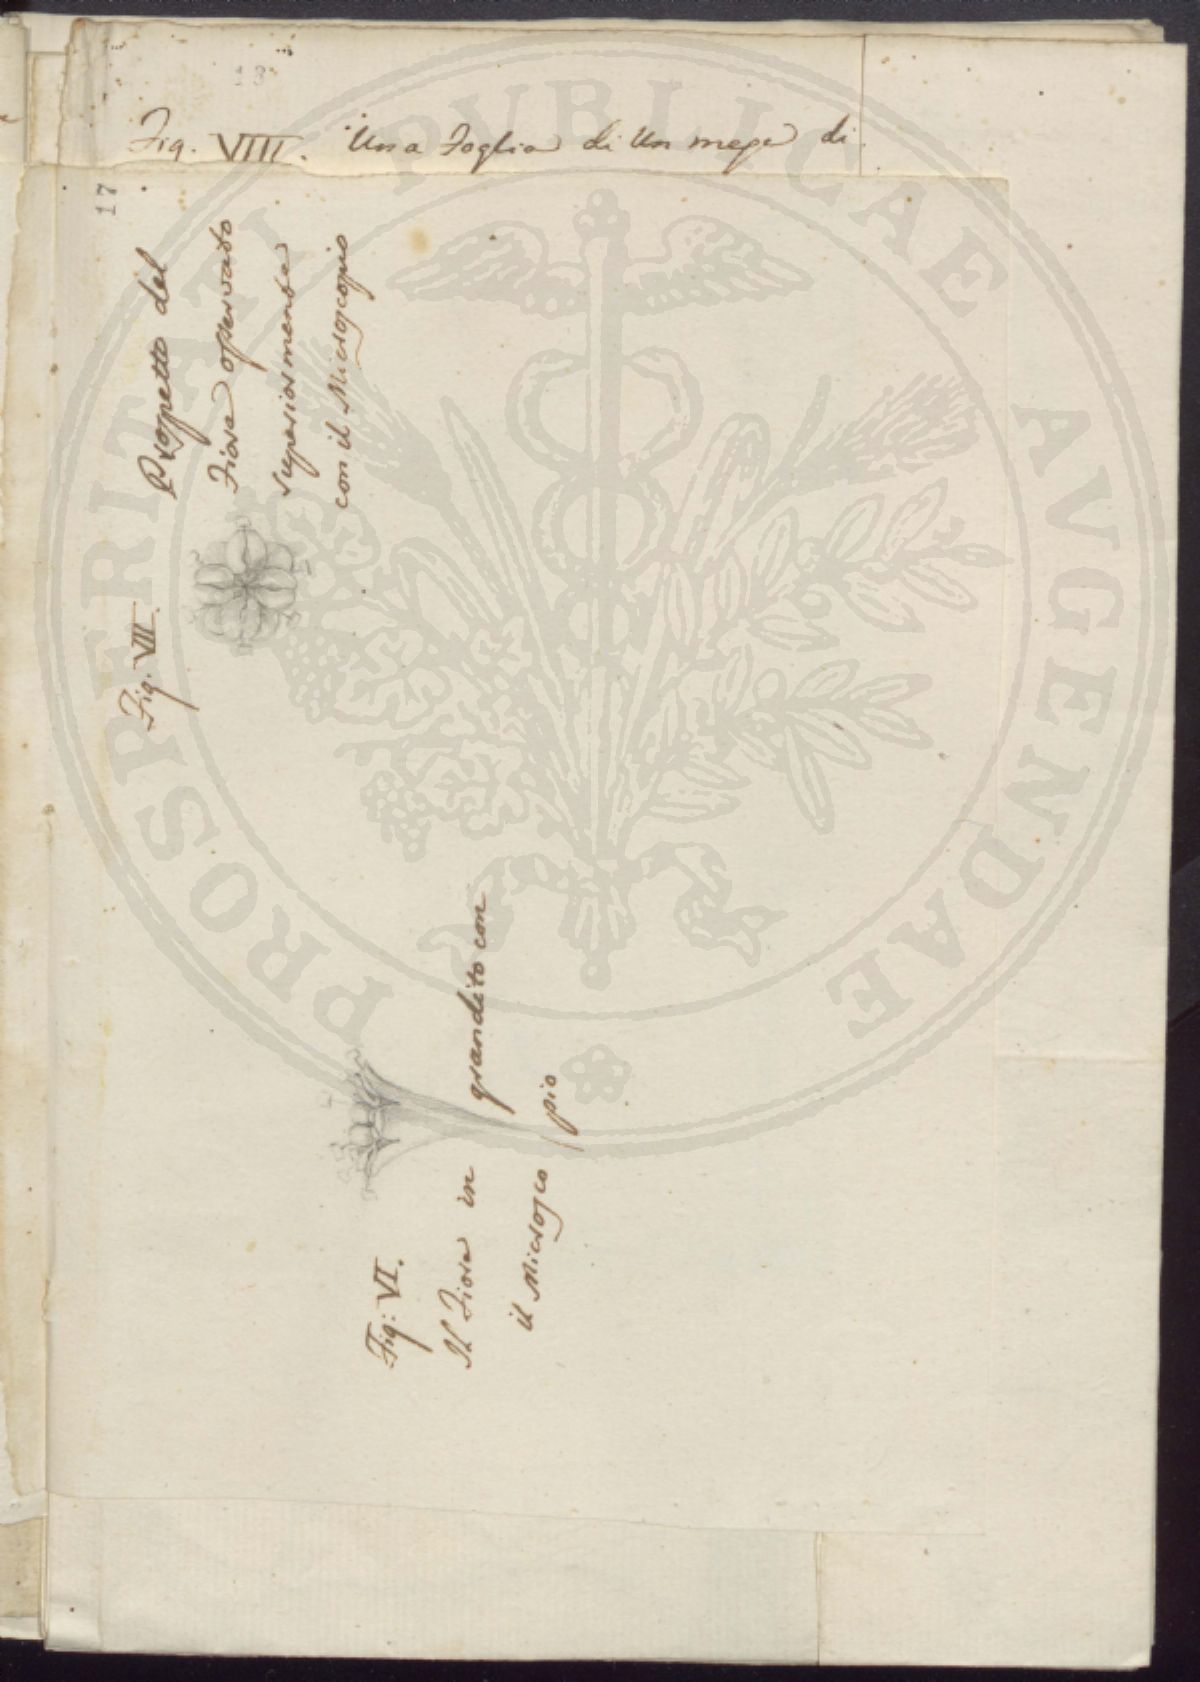 13
Fig. VIIII. Una Foglia di Un mese di
17
Fig. VII.
Prospetto del
Fiore osservato
superiormente
con il Microscopio
Fig: VI.
Il Fiore in grandito con
il Microsco / pio
PROSPERITATI PVBLICAE AVGENDAE